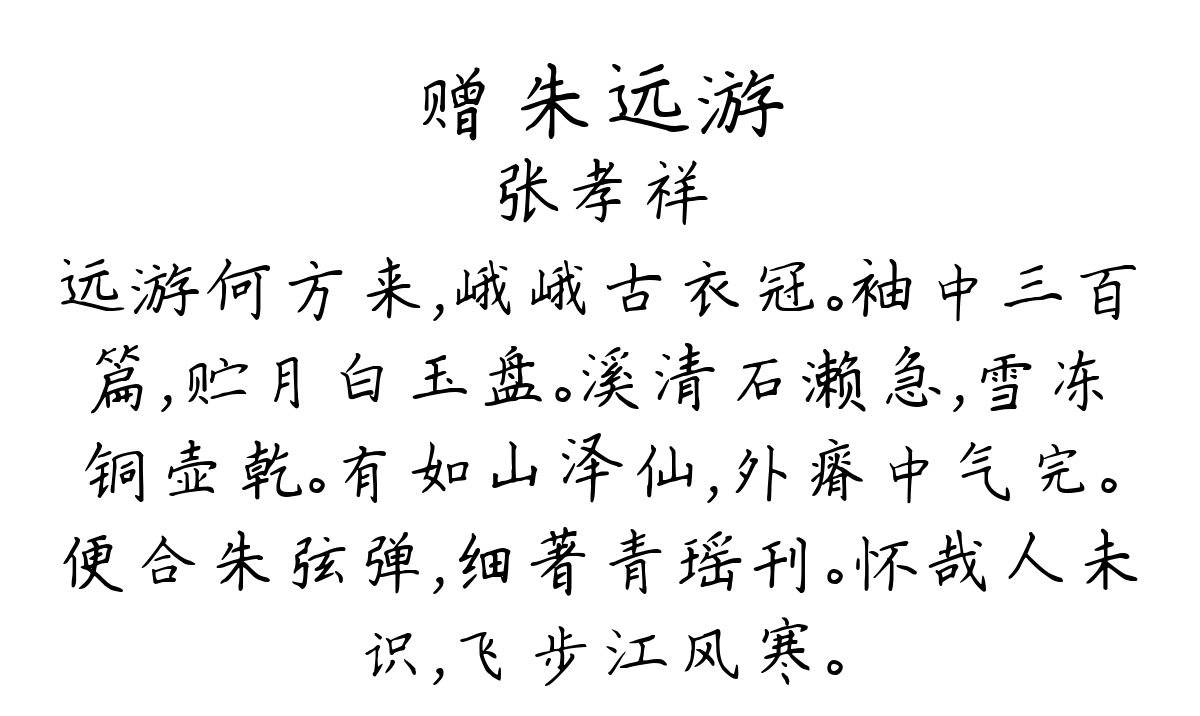 赠朱远游
张孝祥
远游何方来,峨峨古衣冠。袖中三百
篇,贮月白玉盘。溪清石濑急,雪冻
铜壶乾。有如山泽仙,外瘠中气完。
便合朱弦弹,细著青瑶刊。怀哉人未
识,飞步江风寒。